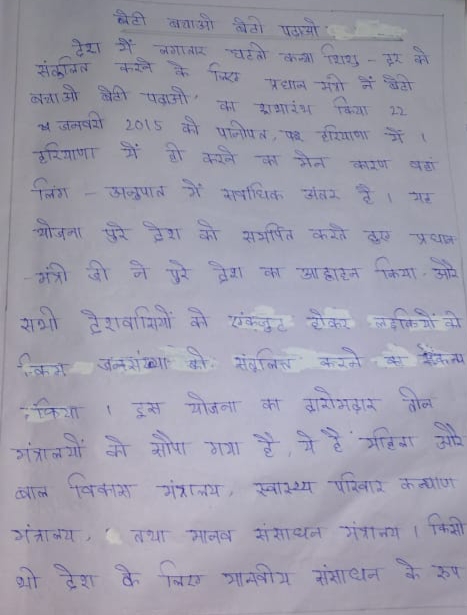 बेटी बचाओ बेटी पढ़ाओ
देश में लगातार घटती कन्या शिशु - दर को
संतुलित करने के लिए प्रधान मंत्री नें बेटी
बचाओ बेटी पढाओ' का शुभारंभ किया 22
जनवरी 2015 को पानीपत, हरियाणा में ।
हरियाणा में ही करने का मेन कारण वहां
लिंग - अनुपात में सर्वाधिक अंतर है । यह
योजना पुरे देश को समर्पित करते हुए प्रधान
-मंत्री जी ने पुरे देश का आह्वाहन किया और
सभी देशवासियों को एकजुट होकर लड़कियों की
जनसंख्या को संतुलित करने का संकल्प
किया । इस योजना का दारोमदार तीन
मंत्रालयों को सौपा गया है, ये हैं महिला और
बाल विकास मंत्रालय, स्वास्थ्य परिवार कल्याण
मंत्रालय, तथा मानव संसाधन मंत्रालय । किसी
भी देश के लिए मानवीय संसाधन के रुप